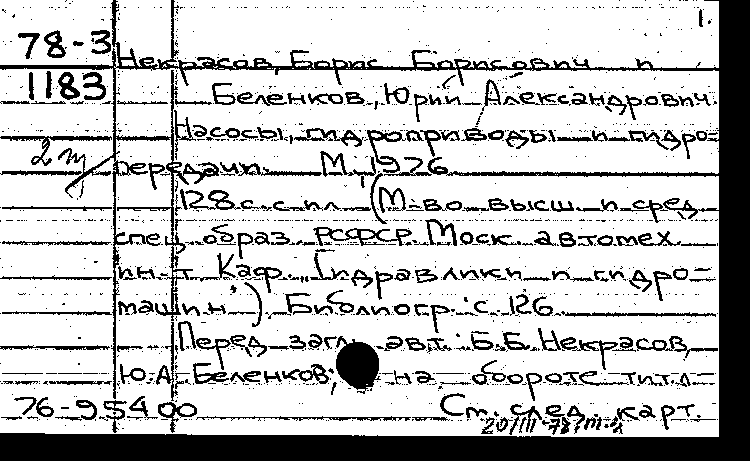 1.
78-3
1183
Некрасов, Борис Борисович и
Беленков, Юрий Александрович.
Насосы, гидроприводы и гидро-
2 т
передачи. М., 1976.
128 с. с ил. (М-во высш. и сред.
спец. образ. РСФСР. Моск. автомех.
ин-т. Каф. "Гидравлики и гидро-
машин"). Библиогр.: с. 126.
Перед загл. авт.: Б.Б. Некрасов,
Ю.А. Беленков; на обороте титл-
76-95400 См. след. карт.
20/III-78